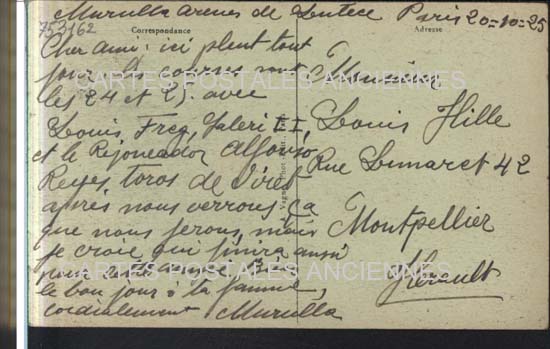 Murulla Arenes de Lutece Paris 20=10=25
753162
Correspondance
Adresse
Cher ami: ici pleut tout
jour les courses sont
les 24 et 25 avec
Louis Freg, Valeri II,
et le Rejoneador Alfonso
Reyes, toros de
apres nous verrons ça
que nous ferons, mais
je crois qui finira aussi
le bon jour à ta famme,
cordialement Murulla
Monsieur
Louis Hille
Rue Lunaret 42
Montpellier
Hérault
CARTES POSTALES ANCIENNES
CARTES POSTALES ANCIENNES